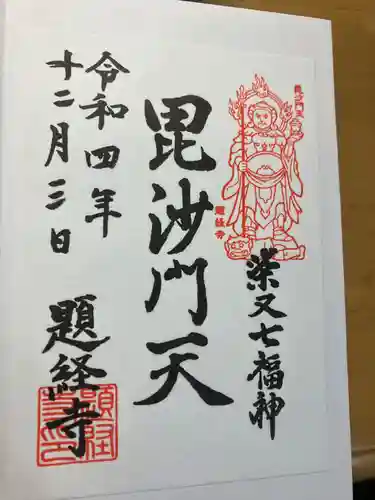 柴又七福神
毘沙門天
題経寺
毘沙門天
令和四年
十二月三日
題経寺